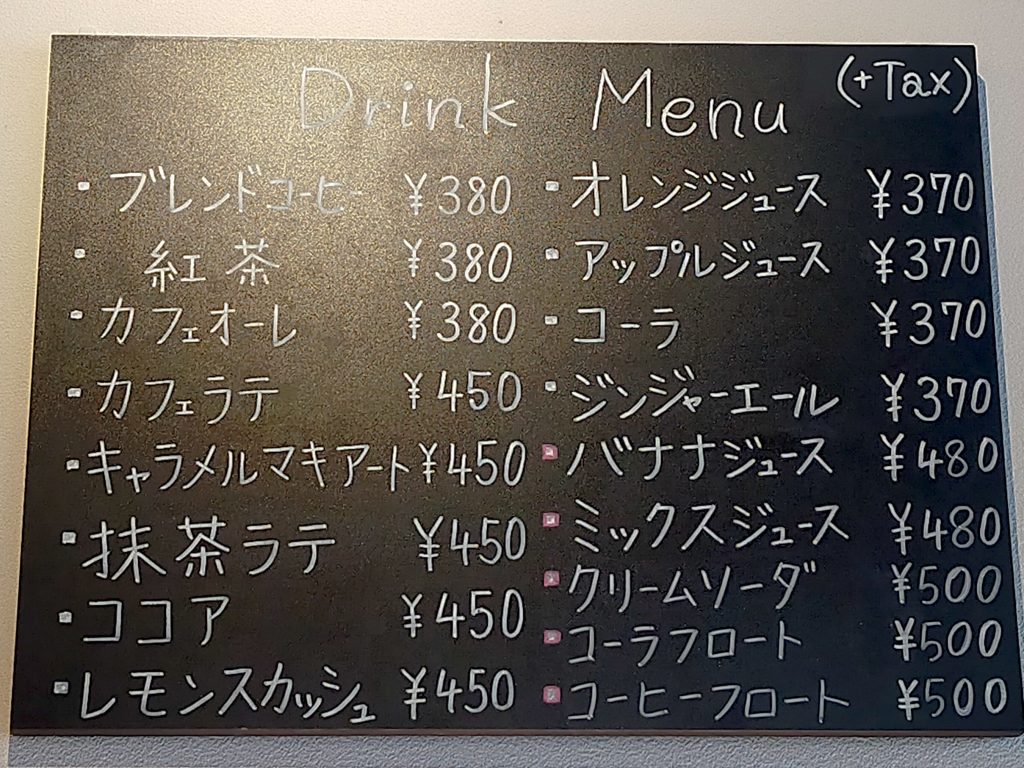 Drink Menu (+Tax)
・ブレンドコーヒー ¥380
・紅茶 ¥380
・カフェオーレ ¥380
・カフェラテ ¥450
・キャラメルマキアート ¥450
・抹茶ラテ ¥450
・ココア ¥450
・レモンスカッシュ ¥450
・オレンジジュース ¥370
・アップルジュース ¥370
・コーラ ¥370
・ジンジャーエール ¥370
・バナナジュース ¥480
・ミックスジュース ¥480
・クリームソーダ ¥500
・コーラフロート ¥500
・コーヒーフロート ¥500